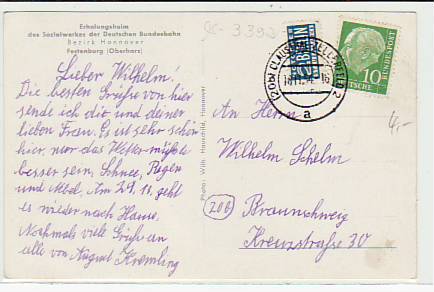 Erholungsheim
des Sozialwerkes der Deutschen Bundesbahn
Bezirk Hannover
Festenburg (Oberharz)
Lieber Wilhelm!
Die besten Grüße von hier
sende ich dir und deiner
lieben Frau. Es ist sehr schön
hier, nur das Wetter müßte
besser sein, Schnee, Regen
und Nebel. Am 29.11. geht
es wieder nach Hause.
Nochmals viele Grüße an
alle von August Kremling
Photo: Wilh. Hauschild, Hannover
CLAUSTHAL-ZELLERFELD
(20b)
a
2
BERLIN
10
DEUTSCHE BUNDESPOST
4,-
An Herrn
Wilhelm Schelm
(20b)
Braunschweig
Kreuzstraße 30